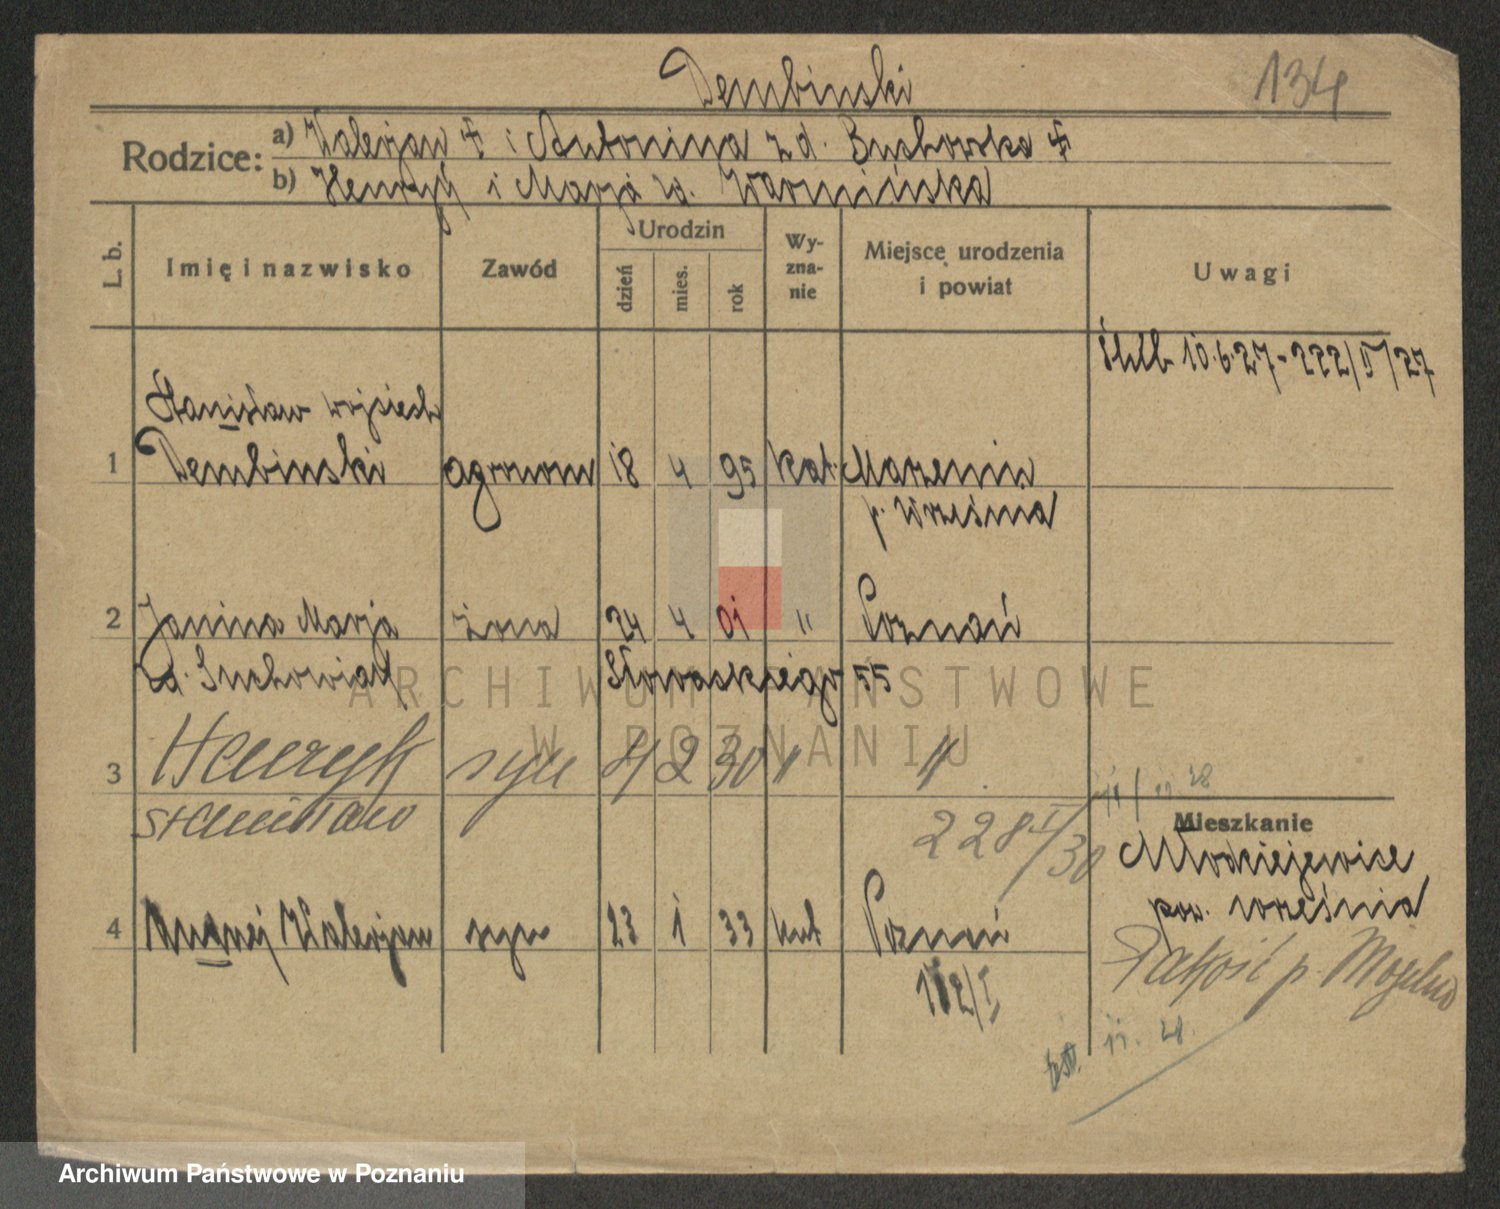 Dembinski
134
Rodzice:
a) Walerjan i Antonina z d. Suchorska
b) Henryk i Marja zd. Warmińska
L. b.
Imię i nazwisko
Zawód
Urodzin
dzień
mies.
rok
Wy-
zna-
nie
Miejsce urodzenia
i powiat
Uwagi
10.6.27 - 222/II/27
Stanisław Wojciech
1 Dembinski agronom 18 4 95 kat. Marzenin
p. Września
2 Janina Marja żona 24 4 01 " Poznań
zd. Suchowiak Słowackiego 55
3 Henryk syn 4 2 30 " "
Stanisław
228 I/30
Mieszkanie
Młodziejewice
pow. Września
4 Andrzej Walerjan syn 23 1 33 kat Poznań
Pakość p. Mogilno
11. 28.
ARCHIWUM PAŃSTWOWE
W POZNANIU
Archiwum Państwowe w Poznaniu